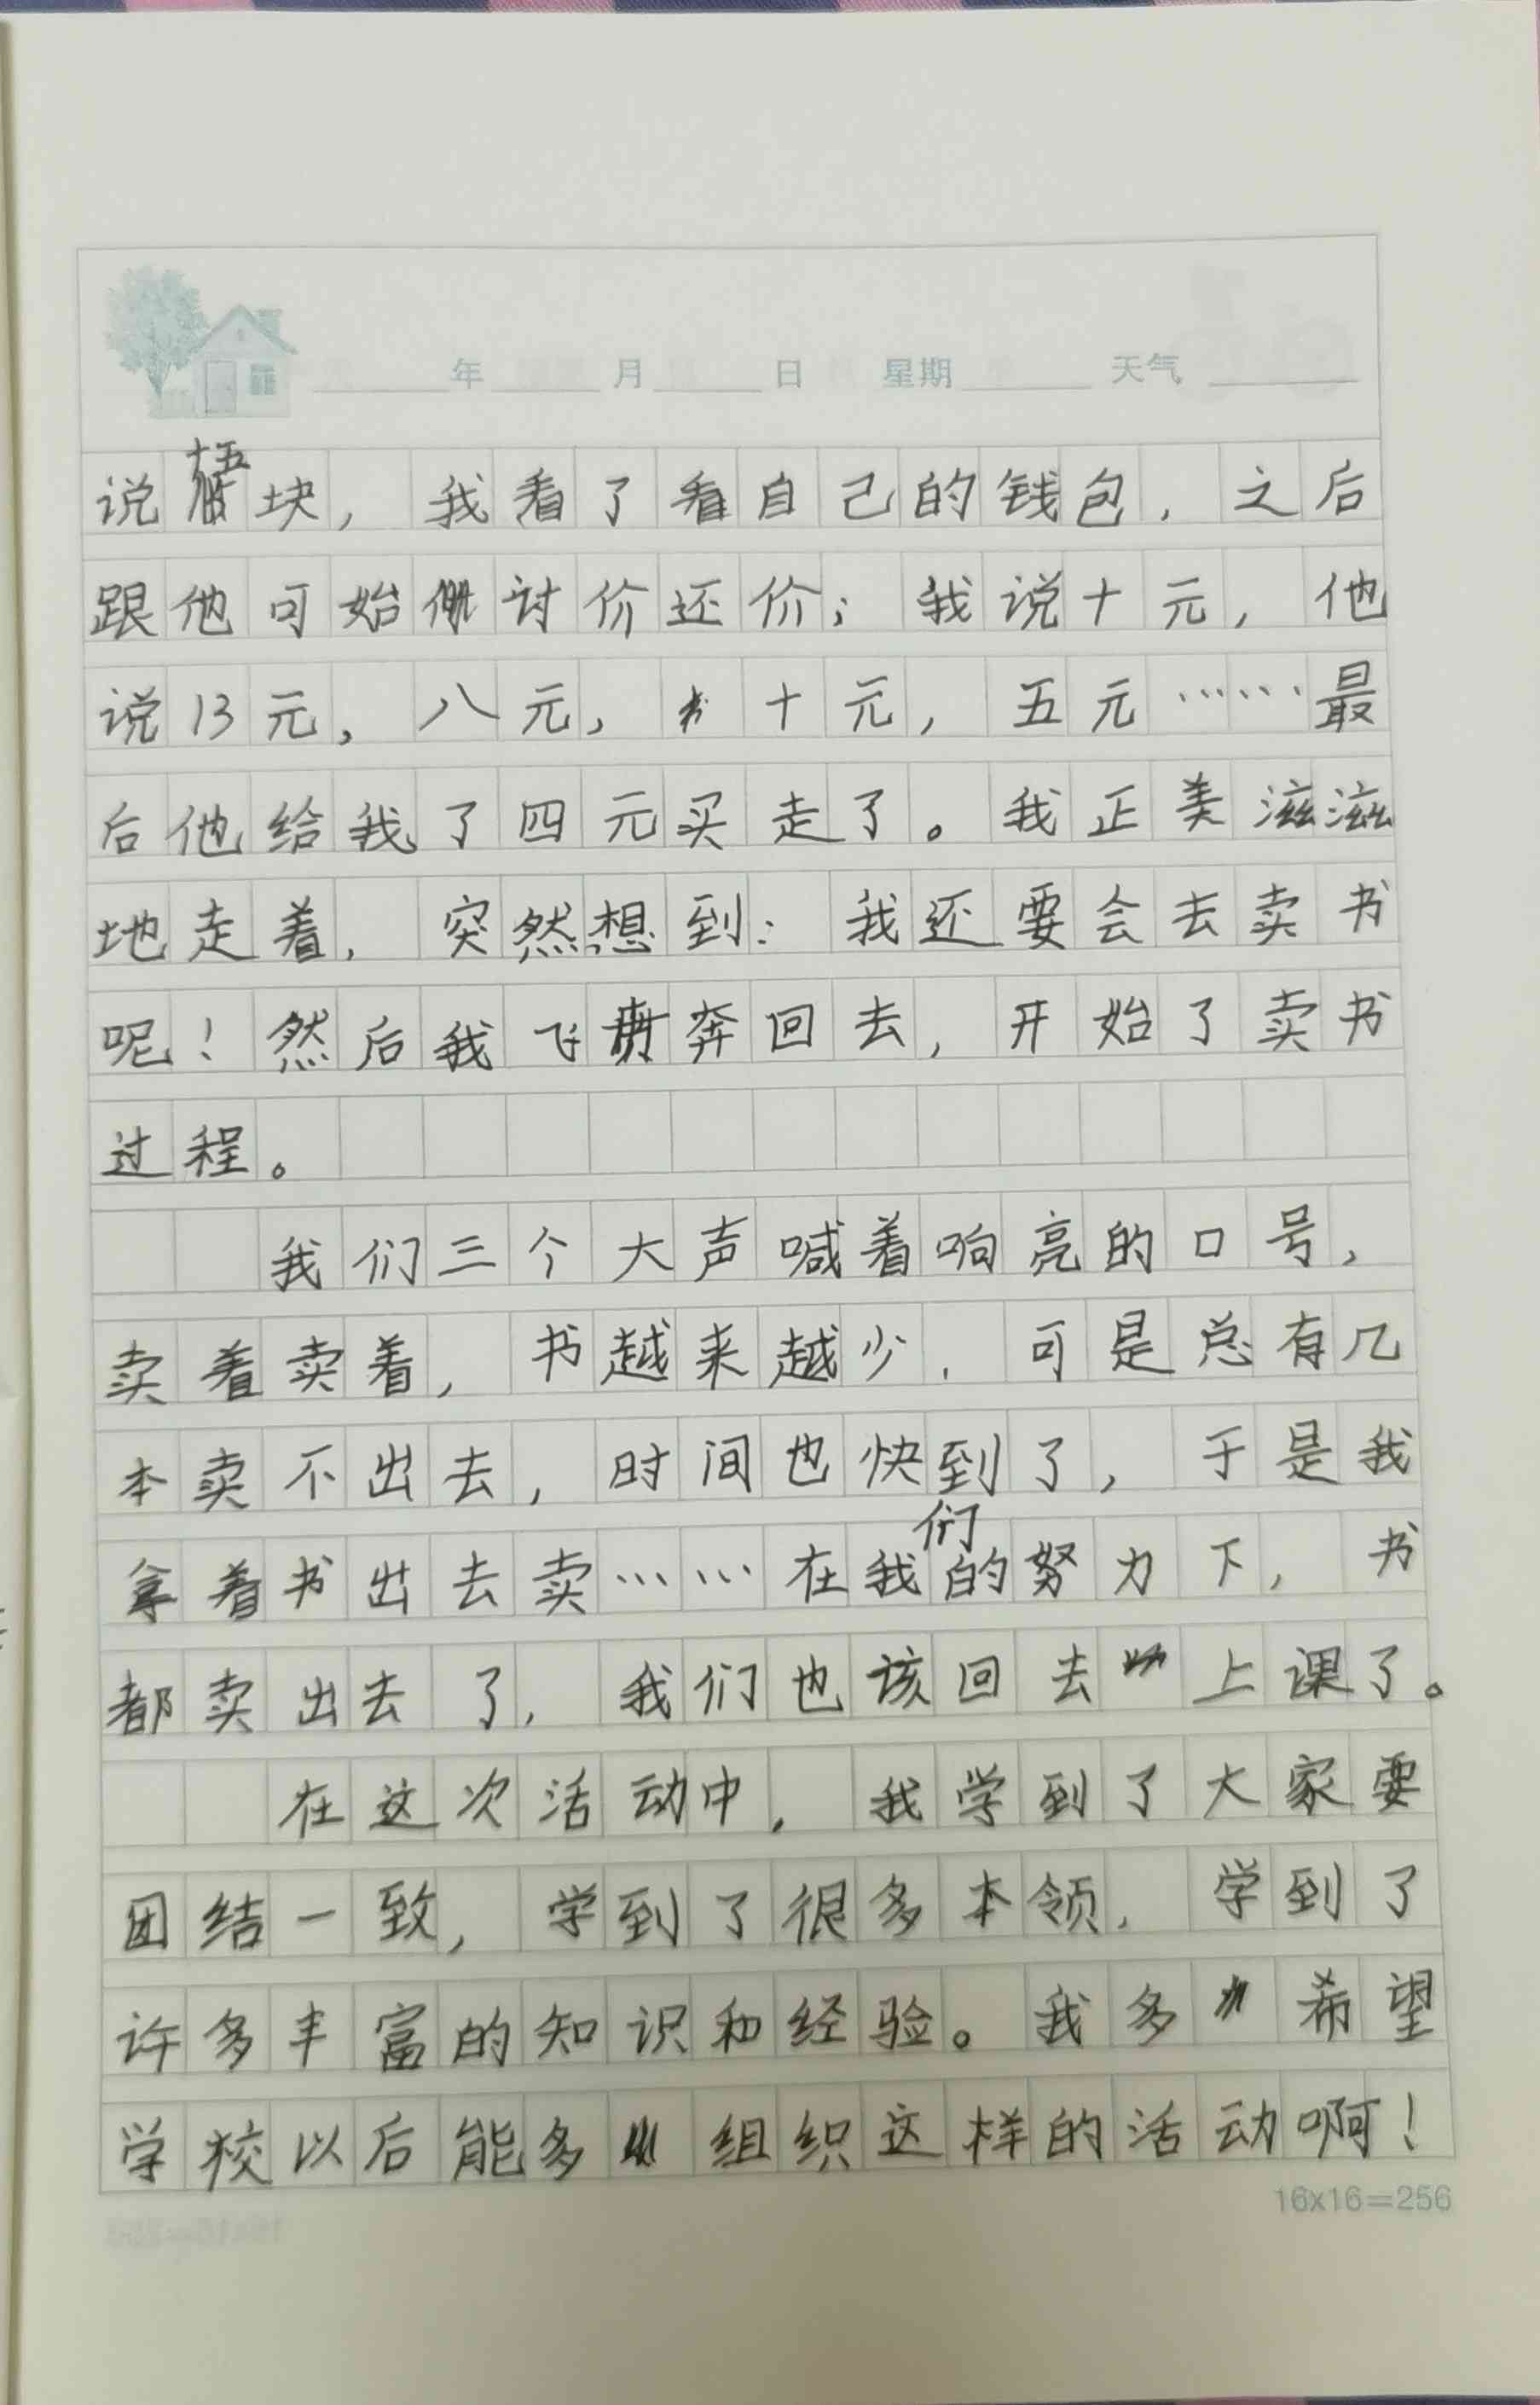 年 月 日 星期 天气
说十五块，我看了看自己的钱包，之后
跟他可始讨价还价；我说十元，他
说13元，八元，十元，五元……最
后他给我了四元买走了。我正美滋滋
地走着，突然想到：我还要会去卖书
呢！然后我飞奔回去，开始了卖书
过程。
我们三个大声喊着响亮的口号，
卖着卖着，书越来越少，可是总有几
本卖不出去，时间也快到了，于是我
拿着书出去卖……在我们的努力下，书
都卖出去了，我们也该回去上课了。
在这次活动中，我学到了大家要
团结一致，学到了很多本领，学到了
许多丰富的知识和经验。我多希望
学校以后能多组织这样的活动啊！
16x16=256